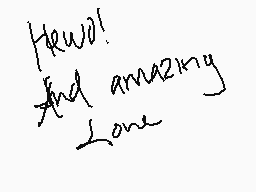 Hewo!
And amazing
Love